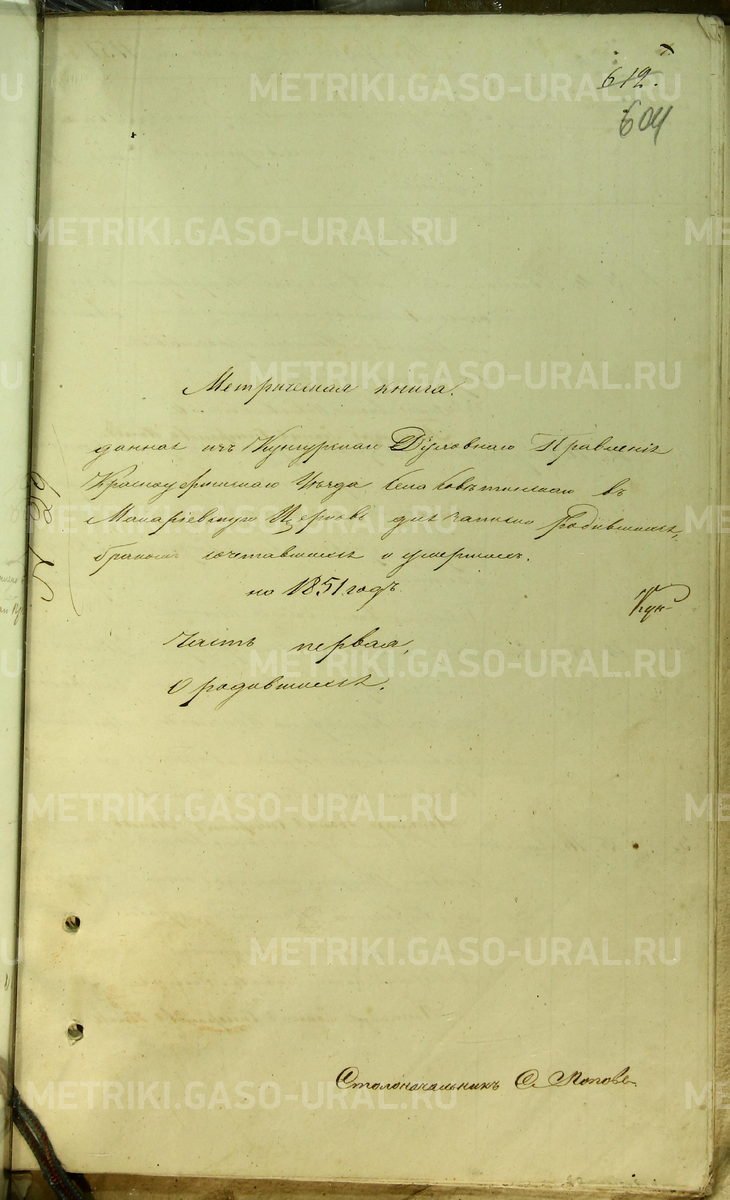 612.
604
Метрическая книга.
данная изъ Кунгурскаго Духовнаго Правленія
Красноуфимскаго Уѣзда Села Совѣтинскаго въ
Макаріевскую Церковь для записи Родившихся,
бракомъ сочетавшихся и умершихъ.
на 1851 годъ
Кун-
Часть первая,
О родившихся.
Столоначальникъ С. Поповъ
METRIKI.GASO-URAL.RU